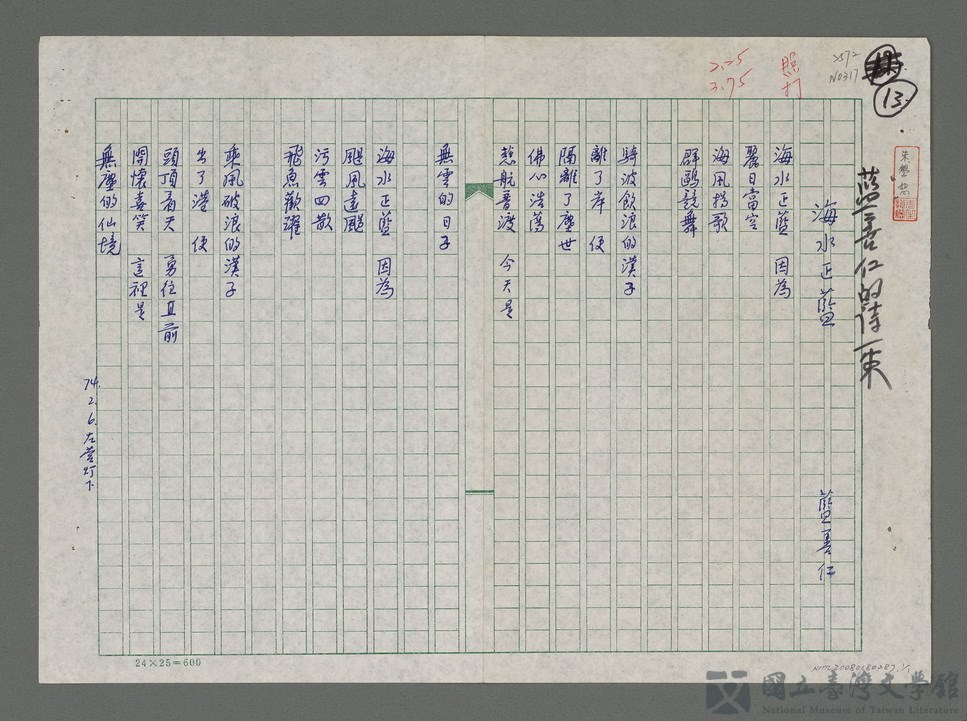 照
打
2.25
3.75
N0317
13.
藍善仁的詩一束
海水正藍 藍善仁
海水正藍 因為
麗日當空
海風揚歌
群鷗競舞
騎波飲浪的漢子
離了岸 便
隔離了塵世
佛心浩蕩
慈航普渡 今天是
無雲的日子
海水正藍 因為
颶風遠颺
污雲四散
飛魚歡躍
乘風破浪的漢子
出了港 便
頭頂有天 勇往直前
開懷喜笑 這裡是
無塵的仙境
74.2.6.左營灯下
24×25=600
國立臺灣文學館
National Museum of Taiwan Literature